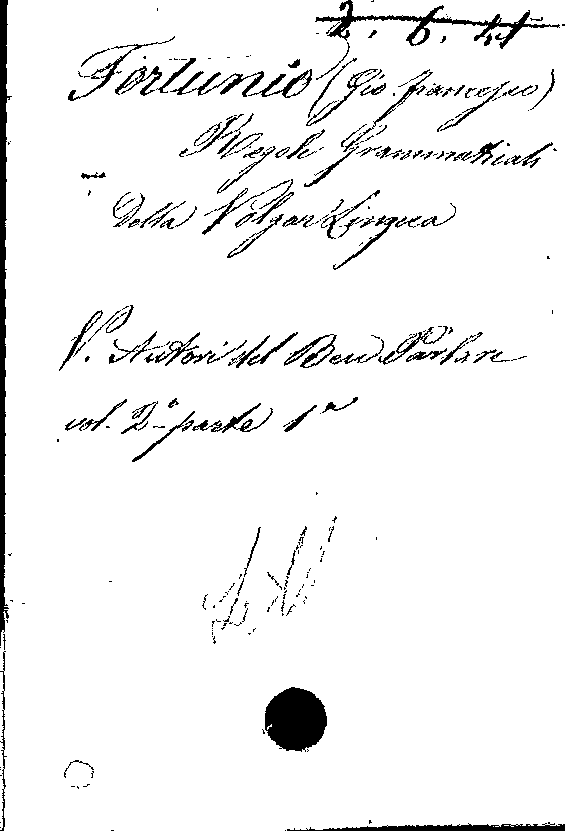 2. 6. 41
Fortunio (Gio. Francesco)
Regole Grammaticali
Della Volgar Lingua
V. Autori del Ben Parlare
vol. 2º parte 1ª